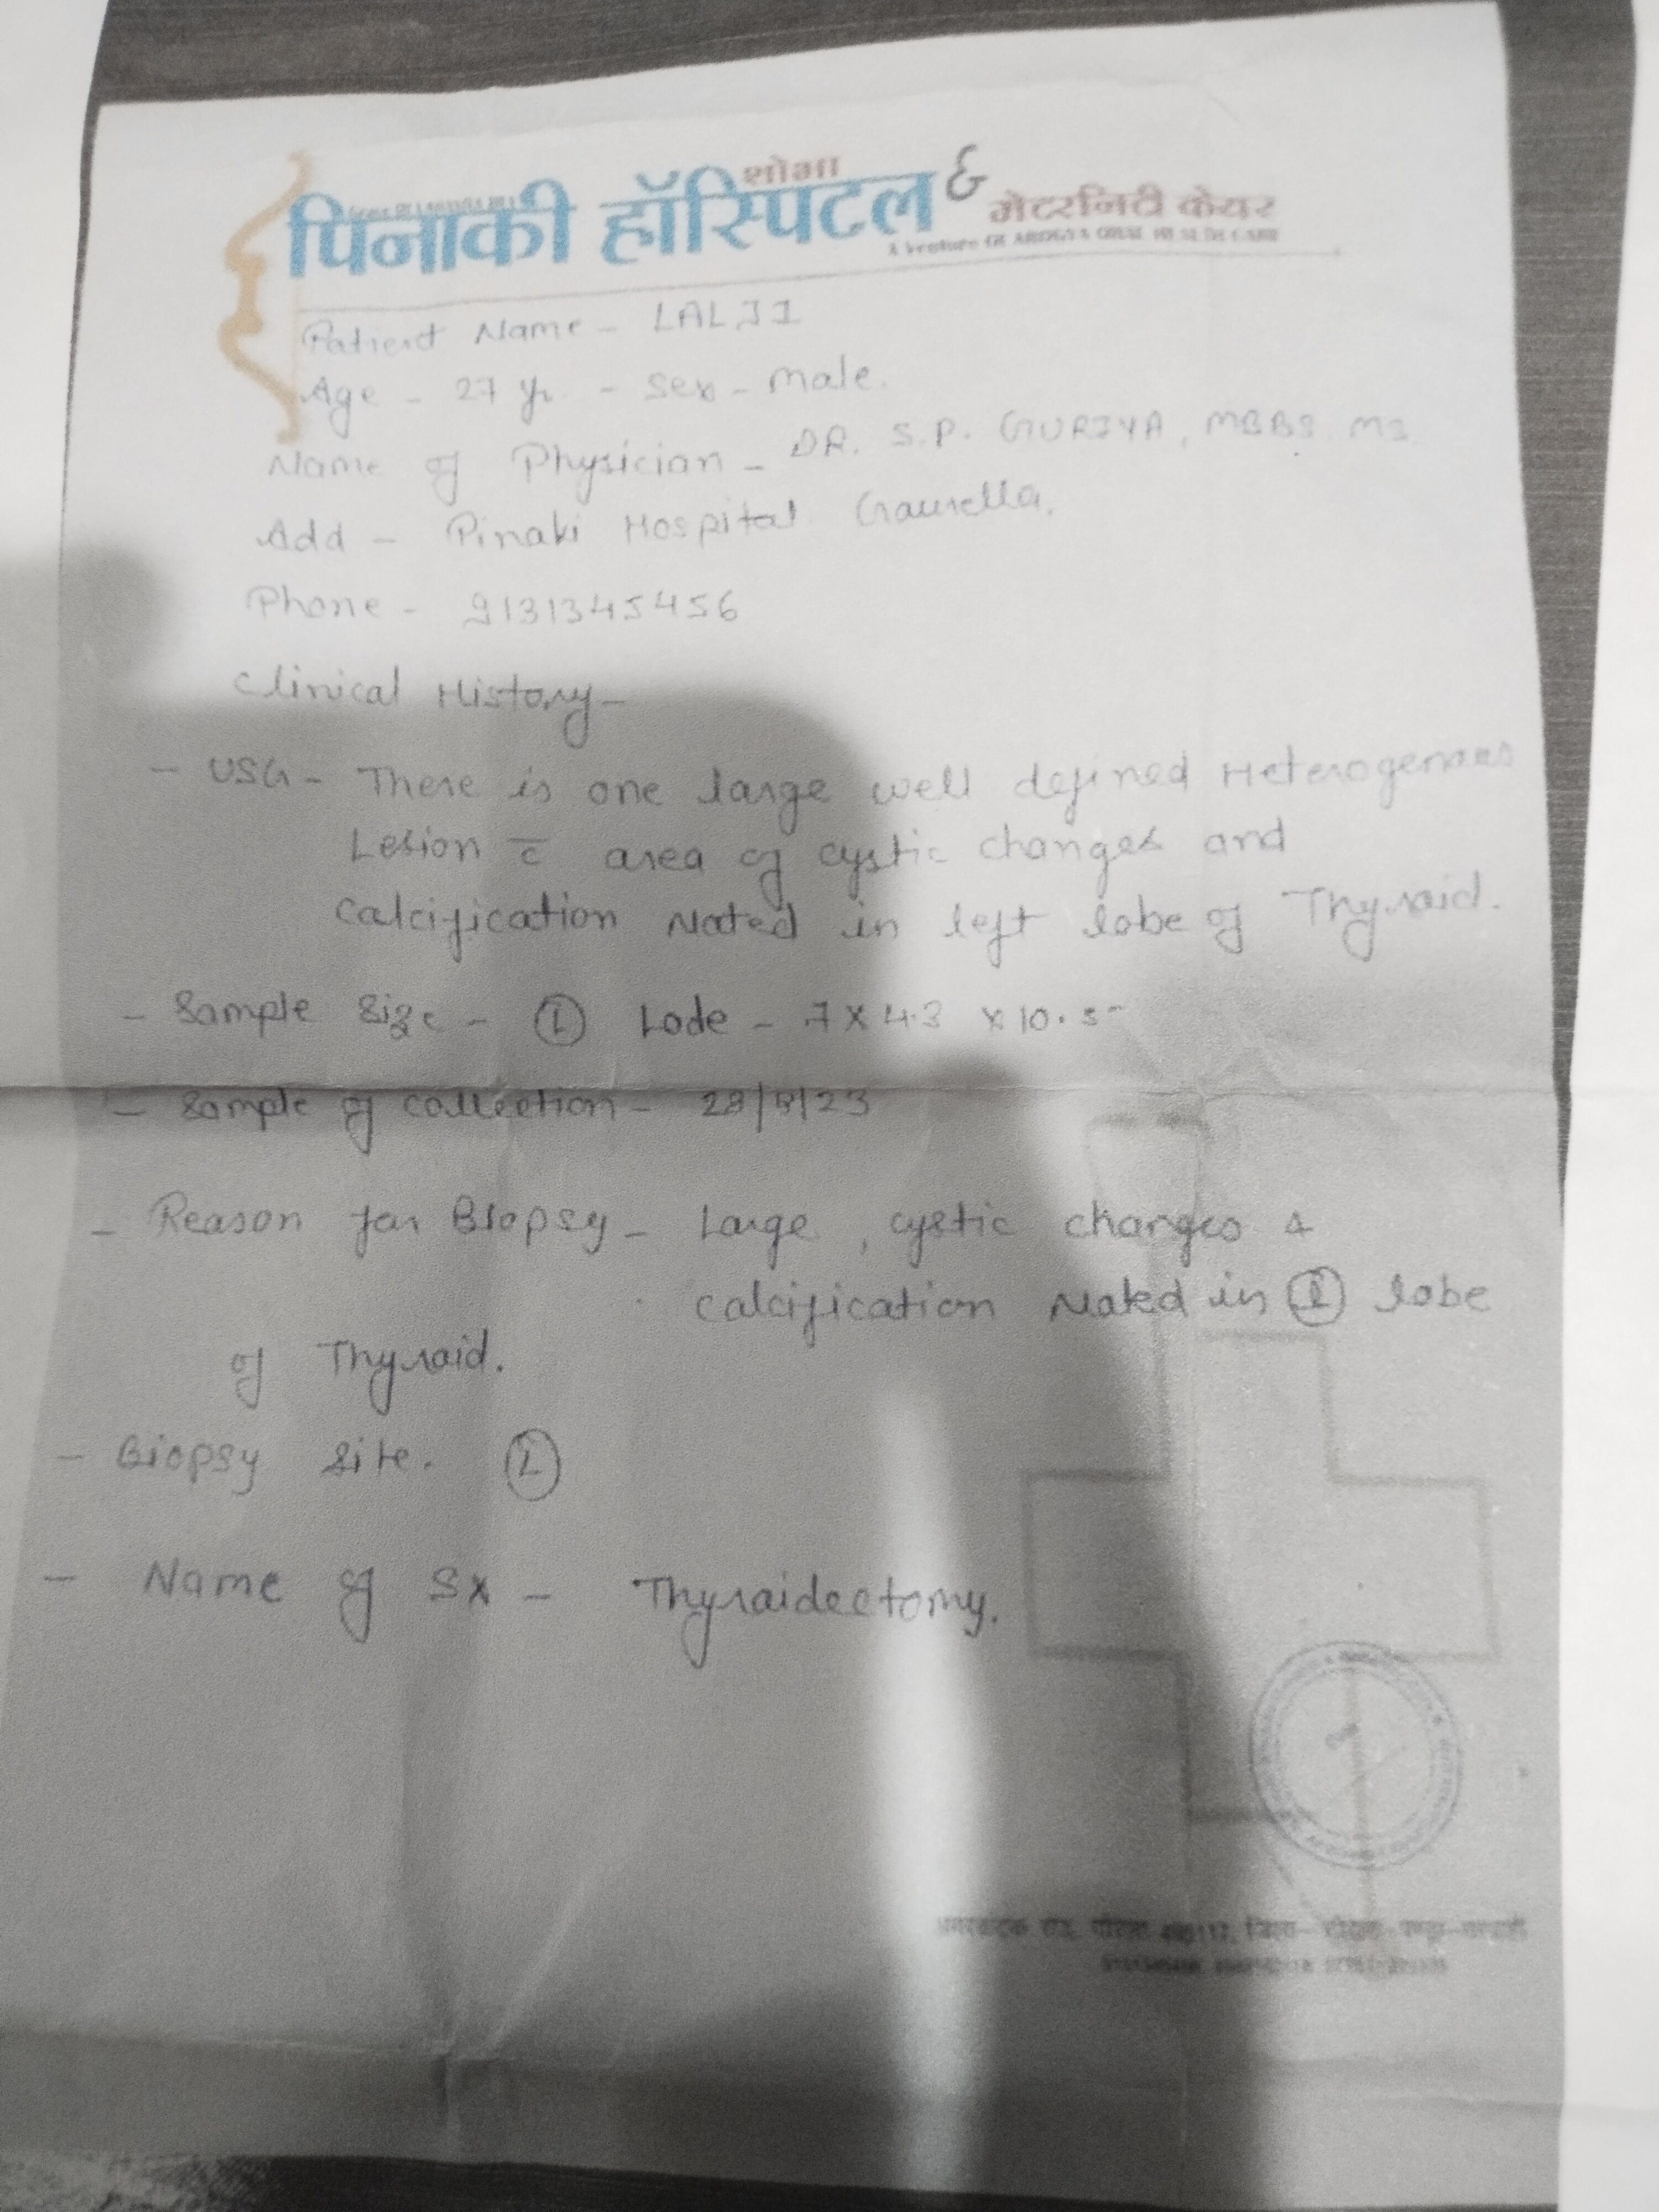 शोभा
पिनाकी हॉस्पिटल & मेटरनिटी केयर
A Venture Of AROGYA ORAL HEALTH CARE
Patient Name - LALJI
Age - 27 yr. - Sex - Male.
Name of Physician - DR. S.P. GURJYA, MBBS MS
Add - Pinaki Hospital Gaurella.
Phone - 9131345456
Clinical History -
- USG - There is one large well defined Heterogeneous
Lesion c̄ area of cystic changes and
Calcification Noted in left lobe of Thyroid.
- Sample Size - Ⓛ Lode - 7 x 4.3 x 10.5
- Sample of collection - 28/8/23
- Reason for Biopsy - Large, cystic changes &
calcification Noted in Ⓛ lobe
of Thyroid.
- Biopsy Site. Ⓛ
- Name of Sx - Thyroidectomy.